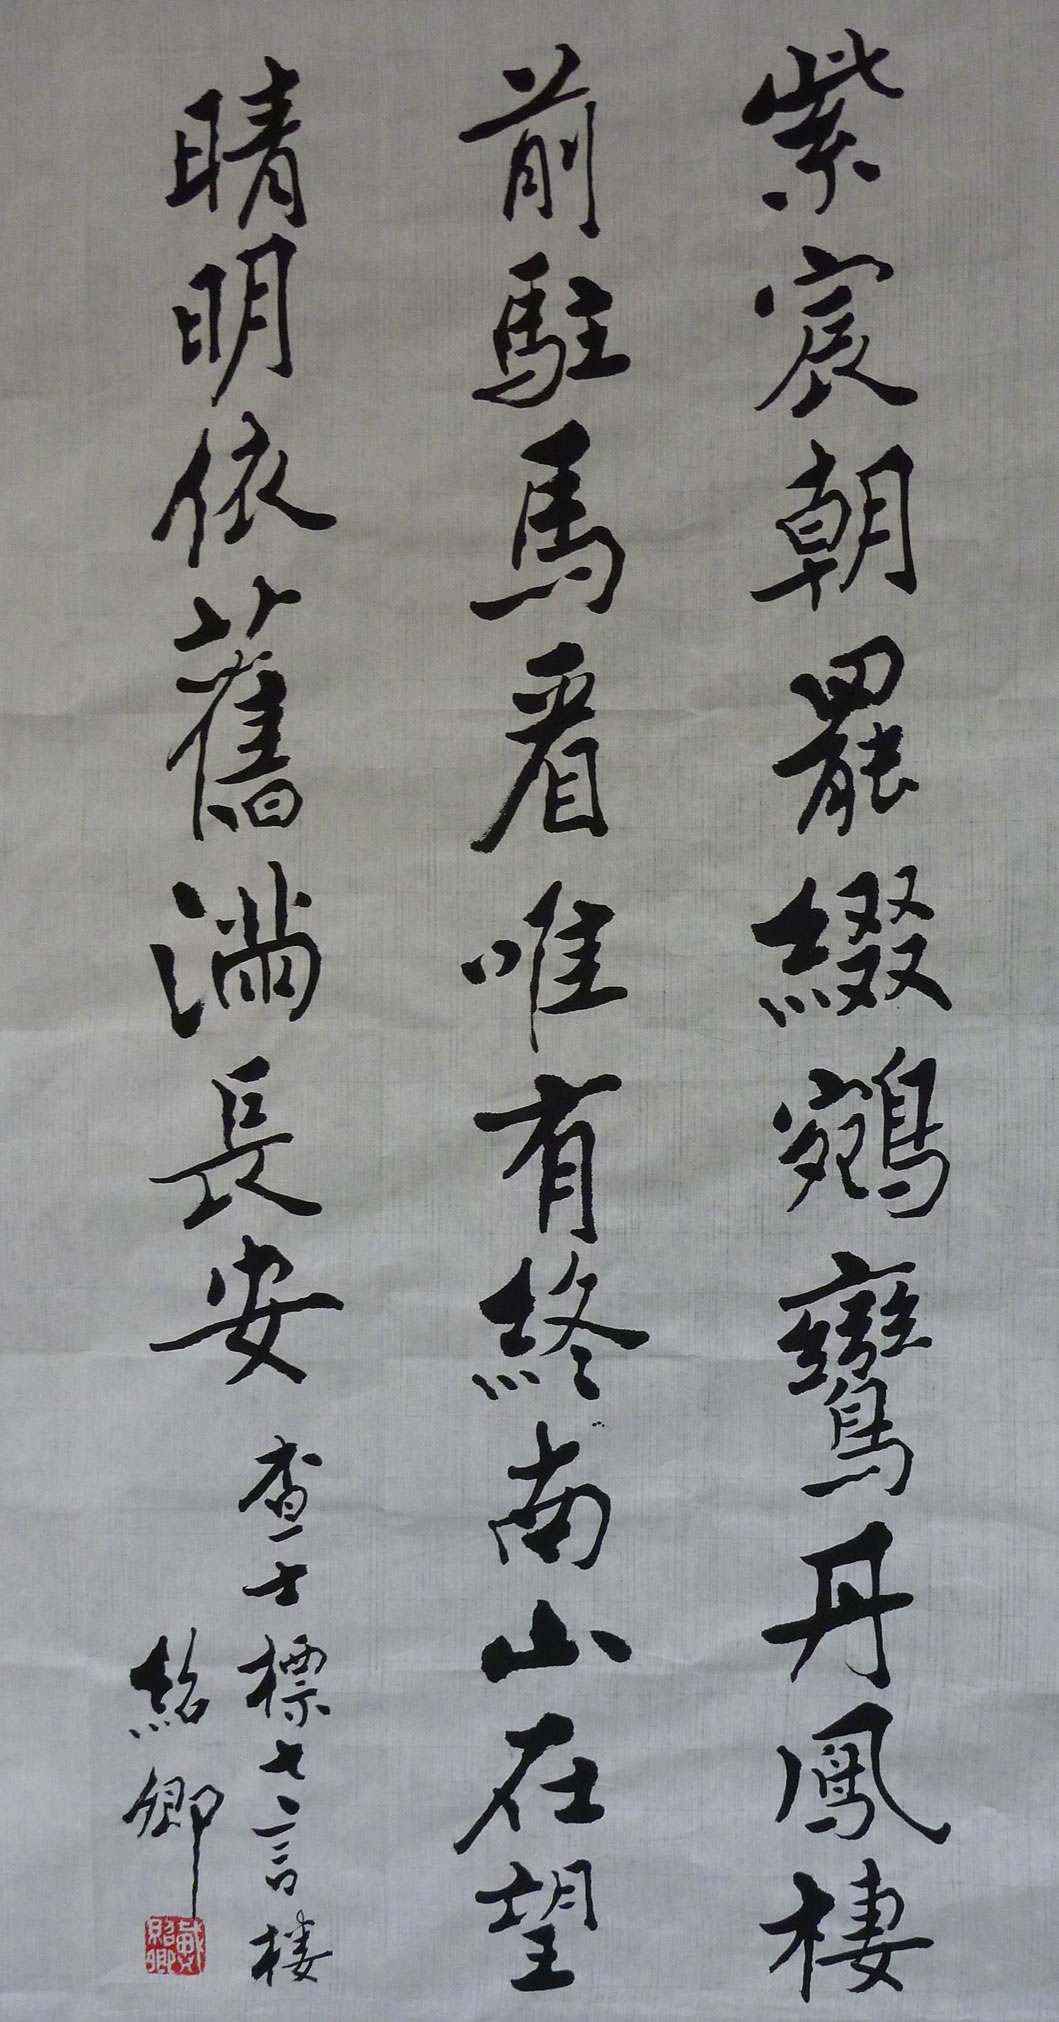 紫宸朝罷綴鵷鸞丹鳳樓
前駐馬看唯有終南山在望
晴明依舊滿長安
查士標七言楼
紹卿
戴紹卿